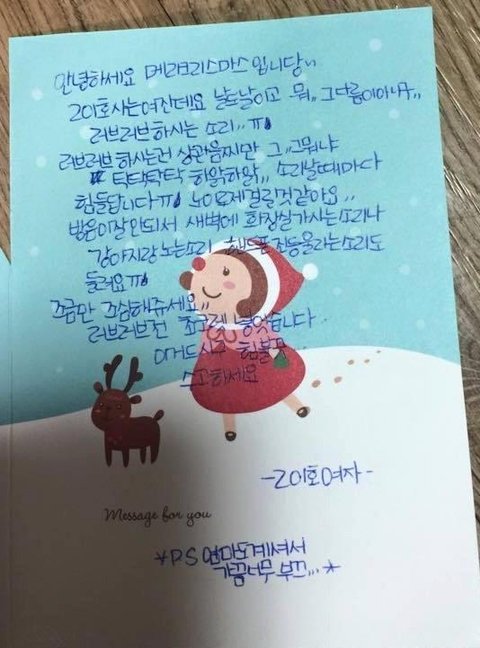 안녕하세요 메리크리스마스 입니당~
201호 사는여잔데요 날도 날이고 뭐,, 그 나름이아니라,,
러브러브하시는 소리,, ㅠ
러브러브 하시는건 상관음찌만 그,, 그뭐냐
탁탁탁탁 하앍하앍,, 소리날때마다
힘들답니다ㅠ 노이로제걸릴것같아요,,
방음이잘안되서 새벽에 화장실가시는소리나
강아지랑노는소리 핸드폰진동울리는소리도
들려요ㅠ
조금만 조심해쥬세요,,
러브러브젼 초코렛 넣었습니다
이거드시구 힘불끈
스고하세요
-201호여자-
Message for you
*P.S 엄마도계셔서
가끔너무 부끄,,,*